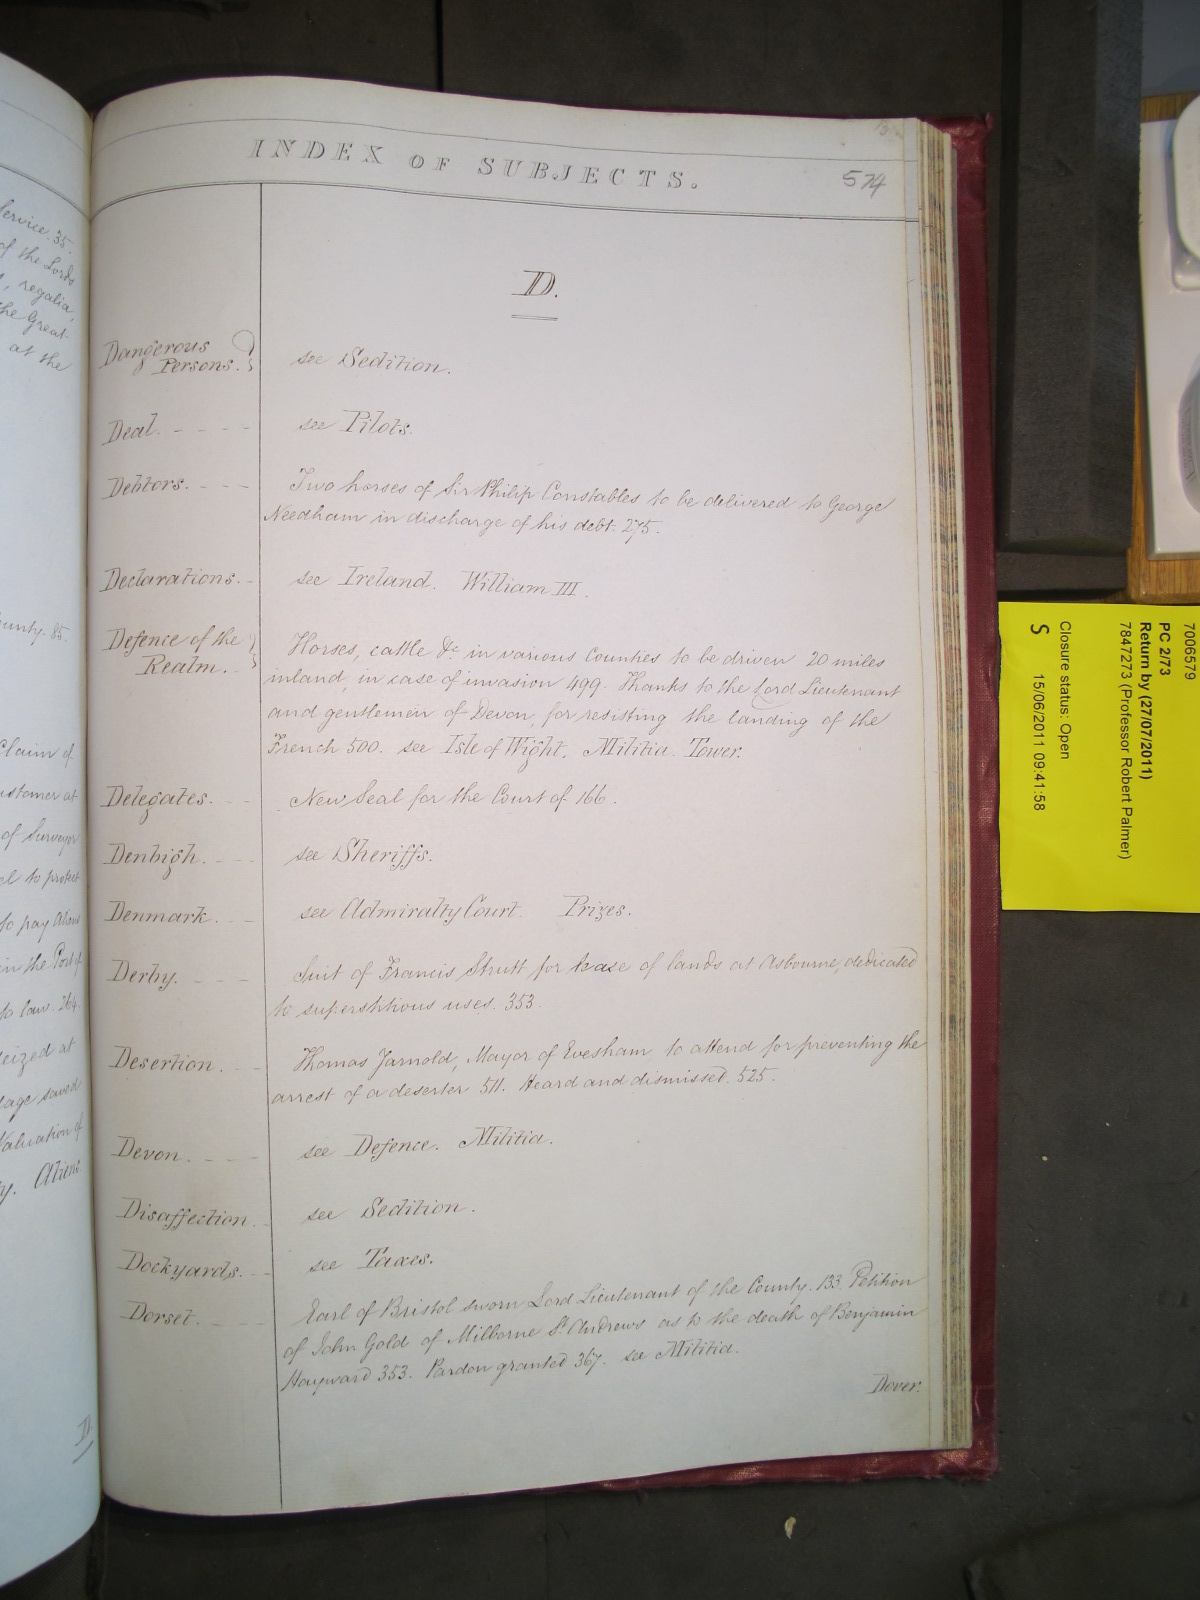 Service. 35.
of the Lords
, regalia,
the Great
at the
unty. 85.
Claim of
ustomer at
of Surveyor
el to protect
to pay Aliens
in the Port of
to law. 264.
seized at
age saved
Valuation of
y. Aliens.
D.
INDEX OF SUBJECTS.
574
D.
Dangerous Persons. } see Sedition.
Deal. - - - - see Pilots.
Debtors. - - - Two horses of Sir Philip Constables to be delivered to George
Needham in discharge of his debt. 275.
Declarations. - see Ireland. William III.
Defence of the Realm. - } Horses, cattle &c. in various Counties to be driven 20 miles
inland, in case of invasion 499. Thanks to the Lord Lieutenant
and gentlemen of Devon, for resisting the landing of the
French 500. see Isle of Wight. Militia. Tower.
Delegates. - - New Seal for the Court of 166.
Denbigh. - - - see Sheriffs.
Denmark. - - see Admiralty Court. Prizes.
Derby. - - - - Suit of Francis Strutt for lease of lands at Asbourne, dedicated
to superstitious uses. 353.
Desertion. - - Thomas Jarnold, Mayor of Evesham, to attend for preventing the
arrest of a deserter 511. Heard and dismissed. 525.
Devon. - - - - see Defence. Militia.
Disaffection. - see Sedition.
Dockyards. - - see Taxes.
Dorset. - - - - Earl of Bristol sworn Lord Lieutenant of the County. 133. Petition
of John Gold of Milborne St. Andrews as to the death of Benjamin
Hayward 353. Pardon granted 367. see Militia.
Dover.
7006579
PC 2/73
Return by (27/07/2011)
7847273 (Professor Robert Palmer)
Closure status: Open
S 15/06/2011 09:41:58